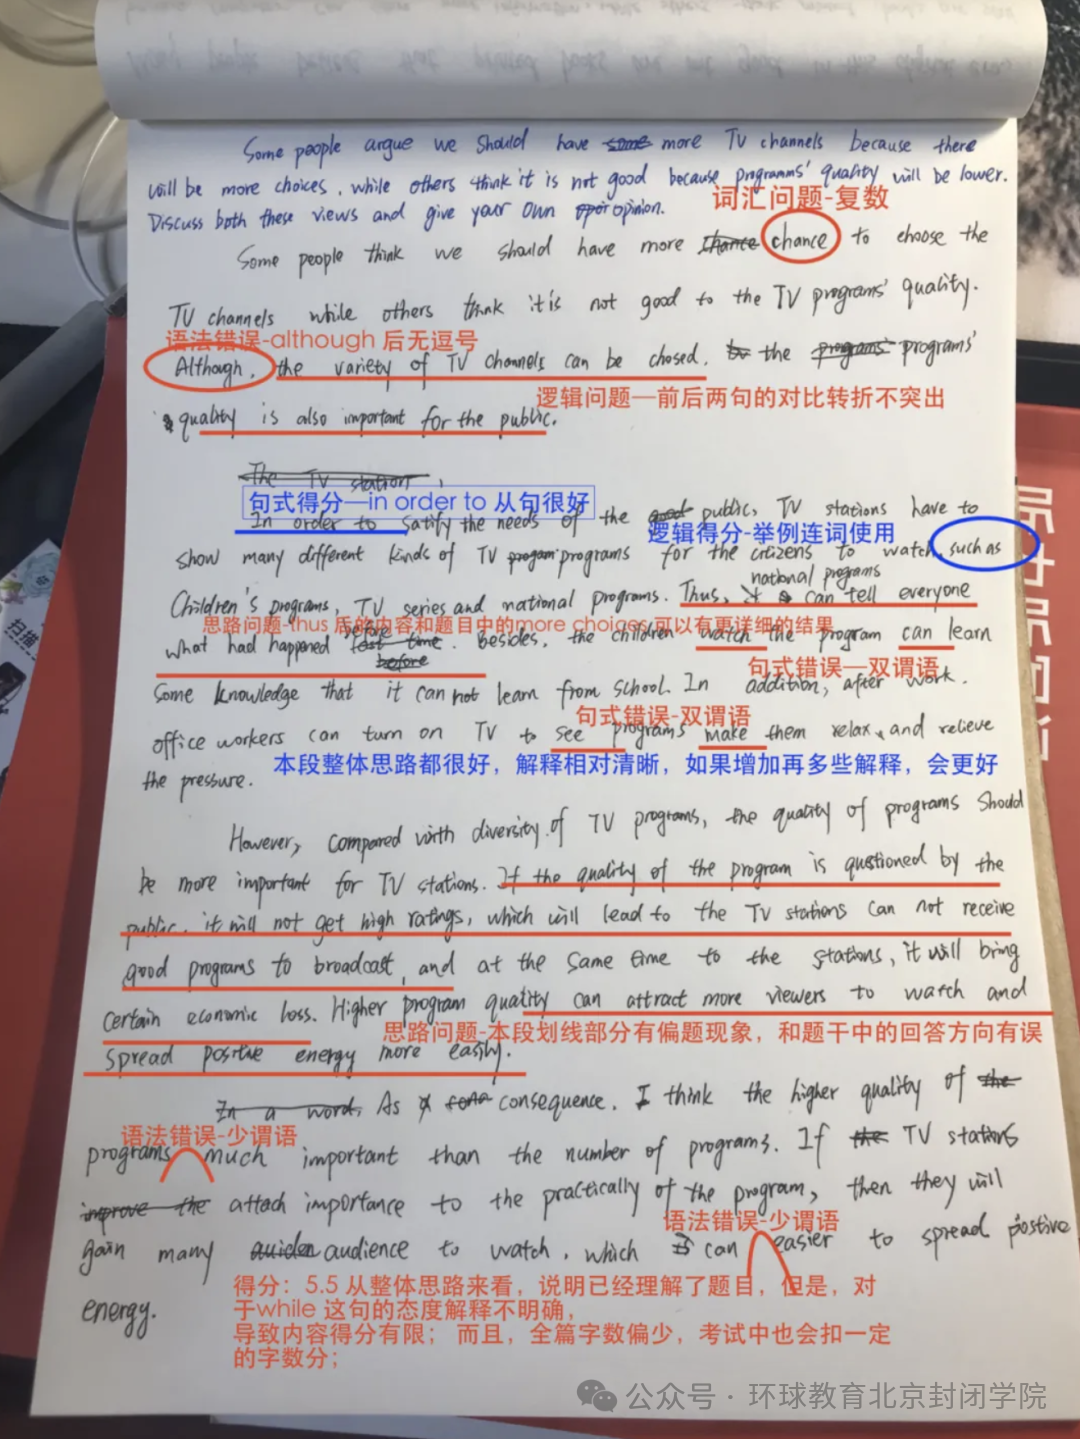 Some people argue we should have some more TV channels because there
will be more choices, while others think it is not good because programms' quality will be lower.
Discuss both these views and give your own opinion.
词汇问题-复数
Some people think we should have more chance chance to choose the
TV channels while others think it is not good to the TV programs' quality.
语法错误-although 后无逗号
Although, the variety of TV channels can be chosed. the programs' programs'
逻辑问题—前后两句的对比转折不突出
quality is also important for the public.
The TV station,
句式得分—in order to 从句很好
In order to satify the needs of the good public, TV stations have to
逻辑得分-举例连词使用
show many different kinds of TV progam programs for the citizens to watch, such as
national programs
Children's programs, TV series and national programs. Thus, can tell everyone
思路问题-thus 后的内容和题目中的more choices 可以有更详细的结果
before
what had happened last time. Besides, the children watch the program can learn
before
句式错误—双谓语
some knowledge that it can not learn from school. In addition, after work.
句式错误-双谓语
office workers can turn on TV to see programs make them relax, and relieve
the pressure.
本段整体思路都很好，解释相对清晰，如果增加再多些解释，会更好
However, compared with diversity of TV programs, the quality of programs should
be more important for TV stations. If the quality of the program is questioned by the
public, it will not get high ratings, which will lead to the TV stations can not receive
good programs to broadcast, and at the same time to the stations, it will bring
certain economic loss. Higher program quality can attract more viewers to watch and
思路问题-本段划线部分有偏题现象，和题干中的回答方向有误
spread positive energy more easily.
In a word, As consequence, I think the higher quality of the
语法错误-少谓语
programs much important than the number of programs. If the TV stations
improve the attach importance to the practically of the program, then they will
语法错误-少谓语
gain many audience to watch, which can easier to spread postive
energy.
得分：5.5 从整体思路来看，说明已经理解了题目，但是，对
于while 这句的态度解释不明确，
导致内容得分有限； 而且，全篇字数偏少，考试中也会扣一定
的字数分；
扫描
公众号 · 环球教育北京封闭学院